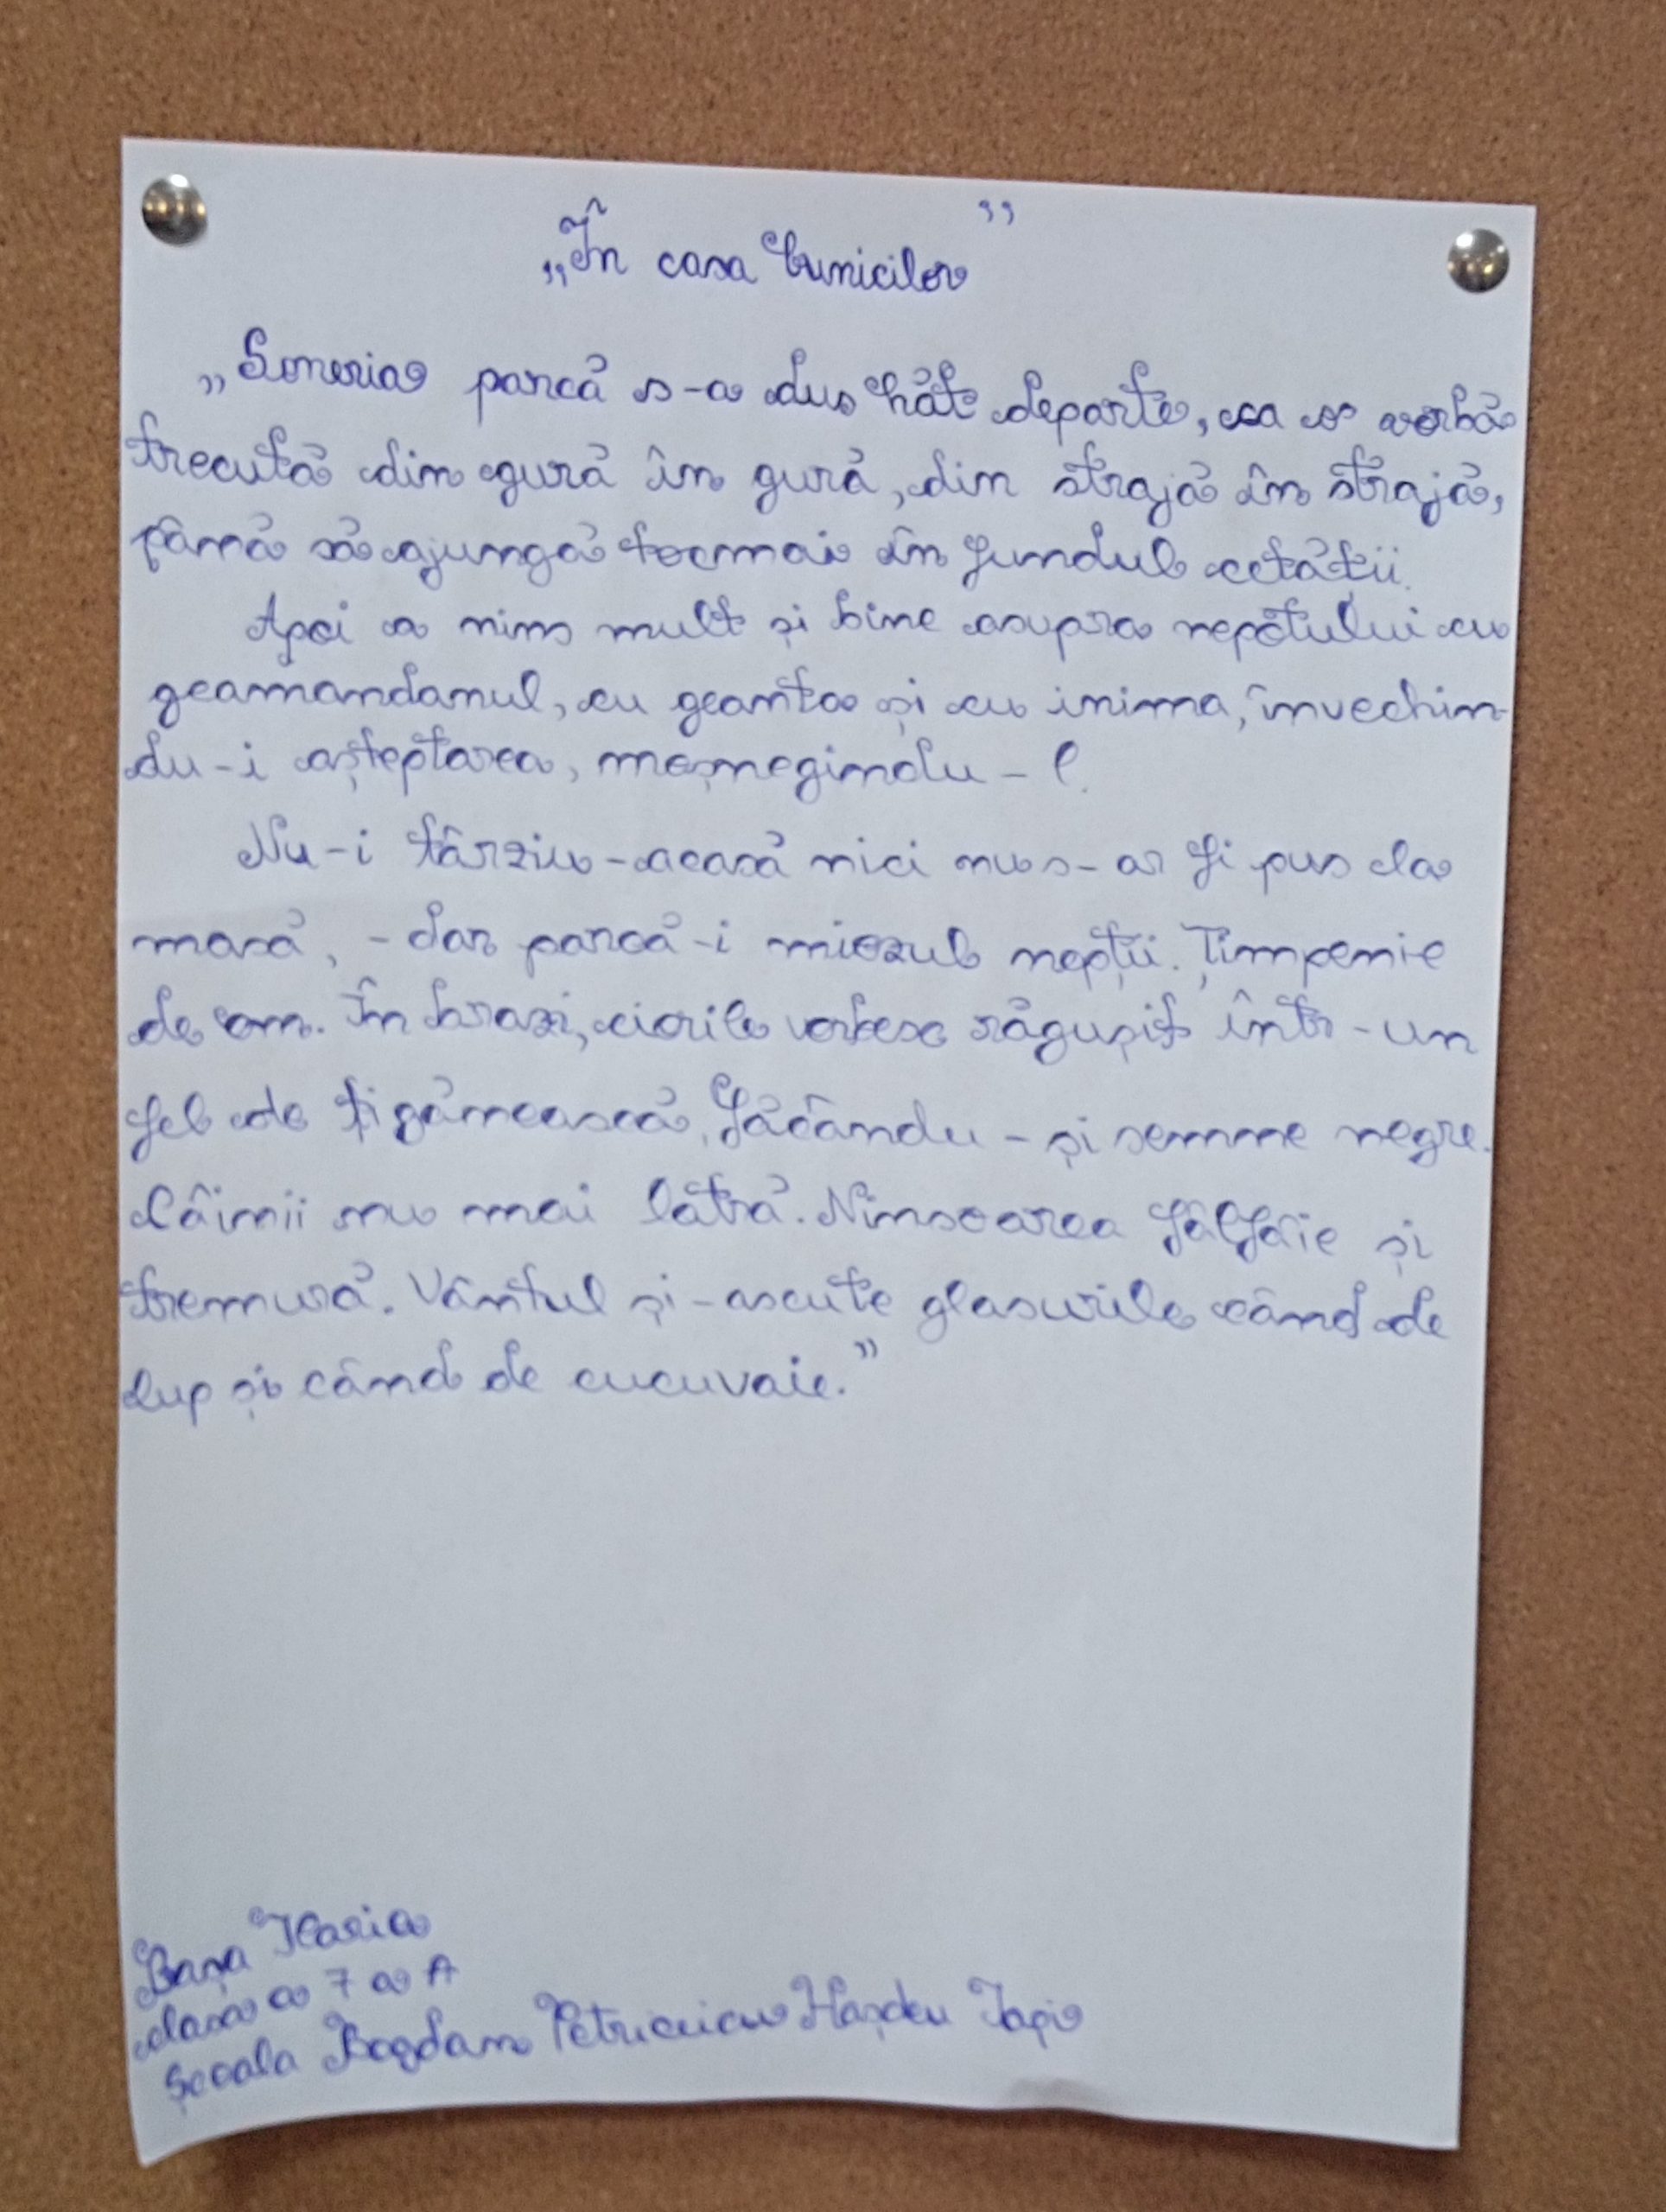 „În casa bunicilor”
„Soneria parcă s-a dus hăt departe, ca o vorbă
trecută din gură în gură, din strajă în strajă,
până să ajungă tocmai în fundul cetății.
Apoi a nins mult și bine asupra nepotului cu
geamandanul, cu geanta și cu inima, învechin-
du-i așteptarea, moșnegindu-l.
Nu-i târziu-acasă nici nu s-ar fi pus la
masă, - dar parcă-i miezul nopții. Țimpenie
de om. În brazi, ciorile vorbesc răgușit într-un
fel de țigănească, făcându-și semne negre.
Câinii nu mai latră. Ninsoarea fâlfâie și
tremură. Vântul și-ascute glasurile când de
lup și când de cucuvaie.”
Ilaria
clasa a 7 a A
Școala Bogdan Petriceicu Hașdeu Iași